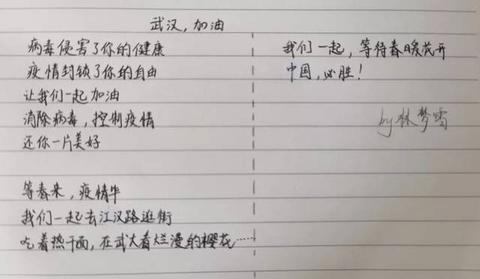 武汉,加油
病毒侵害了你的健康
疫情封锁了你的自由
让我们一起加油
消除病毒,控制疫情
还你一片美好
等春来,疫情毕
我们一起去江汉路逛街
吃着热干面,在武大看烂漫的樱花……
我们一起,等待春暖花开
中国,必胜!
by林梦雪